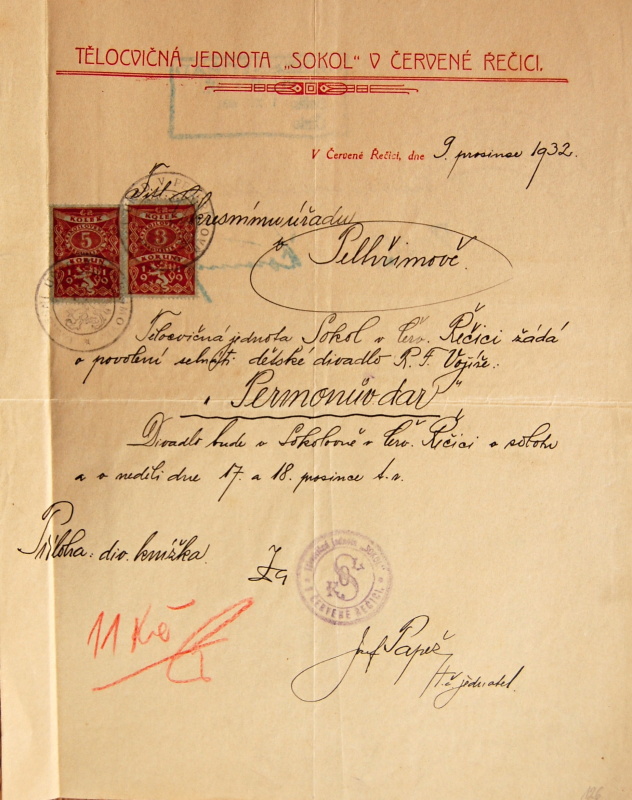 TĚLOCVIČNÁ JEDNOTA „SOKOL" V ČERVENÉ ŘEČICI.
V Červené Řečici, dne 9. prosince 1932.
Okresnímu úřadu
v Pelhřimově.
KOLEK KOLEK
5 3
KORUN KORUNY
Tělocvičná jednota Sokol v Červ. Řečici žádá
o povolení sehráti dětské divadlo R. F. Vojíře:
„Permonův dar"
Divadlo bude v Sokolovně v Červ. Řečici v sobotu
a v neděli dne 17. a 18. prosince t. r.
Příloha: div. knížka.
Za
TĚLOCVIČNÁ JEDNOTA „SOKOL"
V ČERVENÉ ŘEČICI.
SOKOL
11 Kč
Josef Papež
t. č. jednatel.